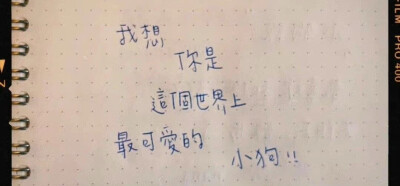 我想
你是
這個世界上
最可愛的
小狗!!